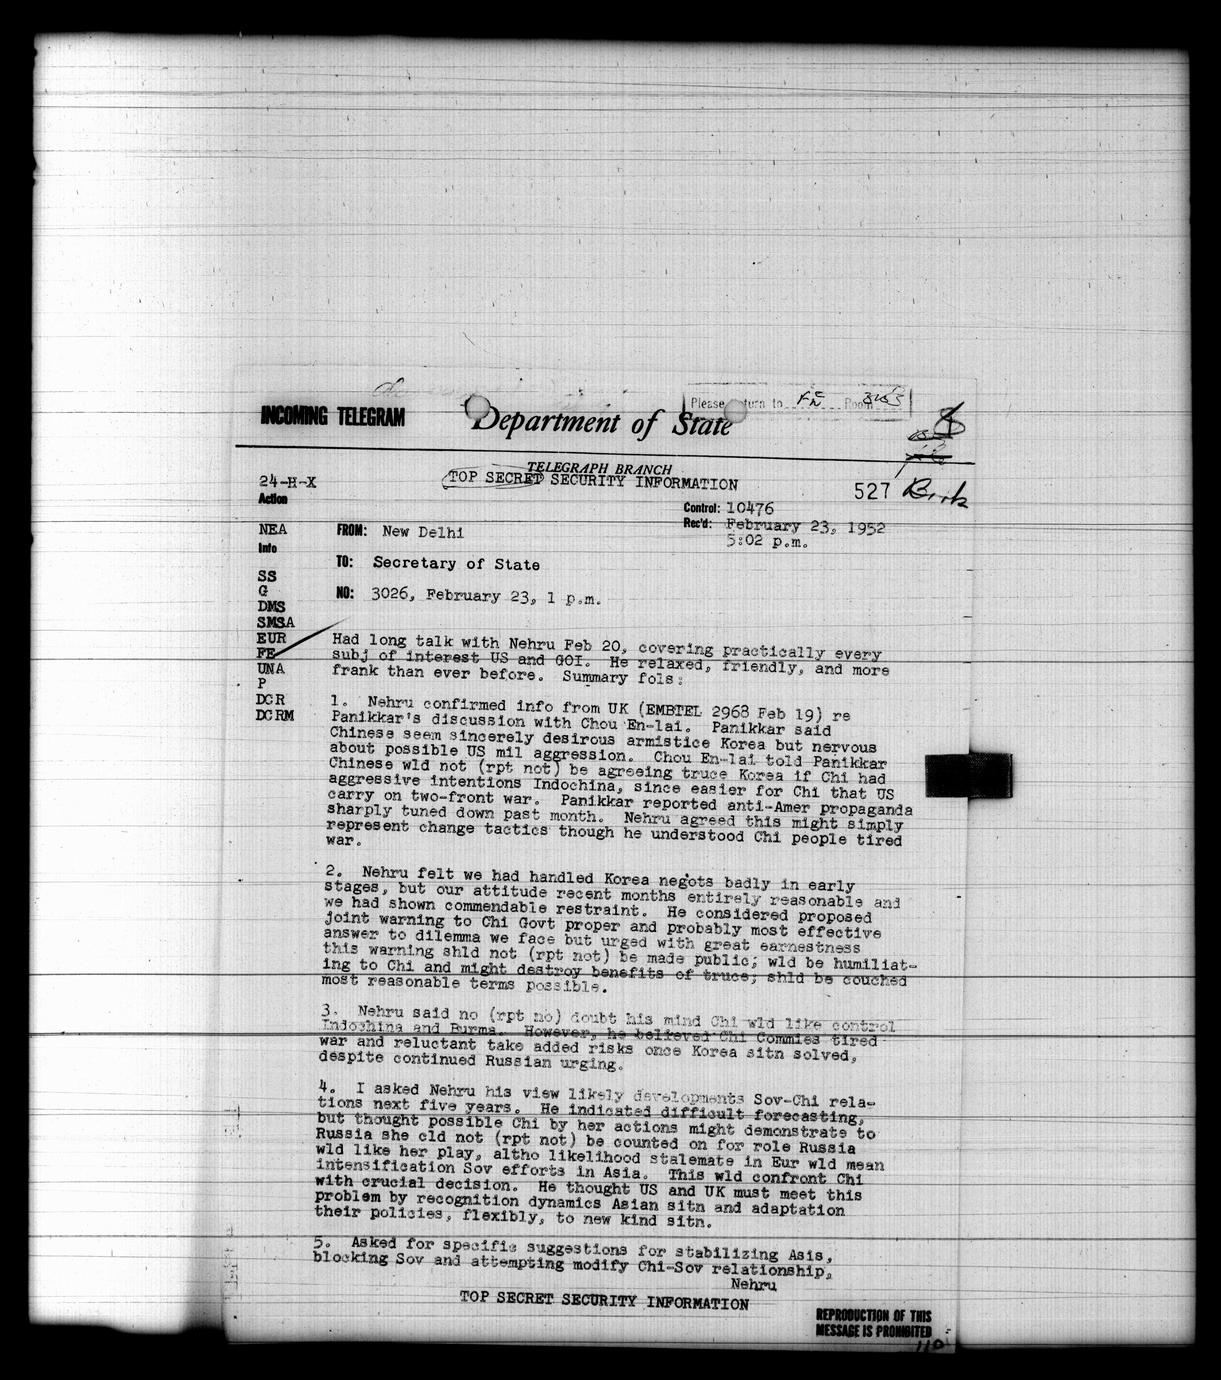 Please return to FE Room
INCOMING TELEGRAM Department of State
TELEGRAPH BRANCH
TOP SECRET SECURITY INFORMATION
24-H-X
Action
527
Control: 10476
Rec'd: February 23, 1952
5:02 p.m.
NEA
Info
FROM: New Delhi
TO: Secretary of State
SS
G
DMS
SMSA
EUR
FE
UNA
P
DCR
DCRM
NO: 3026, February 23, 1 p.m.
Had long talk with Nehru Feb 20, covering practically every
subj of interest US and GOI. He relaxed, friendly, and more
frank than ever before. Summary fols:
1. Nehru confirmed info from UK (EMBTEL 2968 Feb 19) re
Panikkar's discussion with Chou En-lai. Panikkar said
Chinese seem sincerely desirous armistice Korea but nervous
about possible US mil aggression. Chou En-lai told Panikkar
Chinese wld not (rpt not) be agreeing truce Korea if Chi had
aggressive intentions Indochina, since easier for Chi that US
carry on two-front war. Panikkar reported anti-Amer propaganda
sharply tuned down past month. Nehru agreed this might simply
represent change tactics though he understood Chi people tired
war.
2. Nehru felt we had handled Korea negots badly in early
stages, but our attitude recent months entirely reasonable and
we had shown commendable restraint. He considered proposed
joint warning to Chi Govt proper and probably most effective
answer to dilemma we face but urged with great earnestness
this warning shld not (rpt not) be made public; wld be humiliat-
ing to Chi and might destroy benefits of truce; shld be couched
most reasonable terms possible.
3. Nehru said no (rpt no) doubt his mind Chi wld like control
Indochina and Burma. However, he believed Chi Commies tired
war and reluctant take added risks once Korea sitn solved,
despite continued Russian urging.
4. I asked Nehru his view likely developments Sov-Chi rela-
tions next five years. He indicated difficult forecasting,
but thought possible Chi by her actions might demonstrate to
Russia she cld not (rpt not) be counted on for role Russia
wld like her play, altho likelihood stalemate in Eur wld mean
intensification Sov efforts in Asia. This wld confront Chi
with crucial decision. He thought US and UK must meet this
problem by recognition dynamics Asian sitn and adaptation
their policies, flexibly, to new kind sitn.
5. Asked for specific suggestions for stabilizing Asis,
blocking Sov and attempting modify Chi-Sov relationship,
Nehru
TOP SECRET SECURITY INFORMATION
REPRODUCTION OF THIS
MESSAGE IS PROHIBITED
110